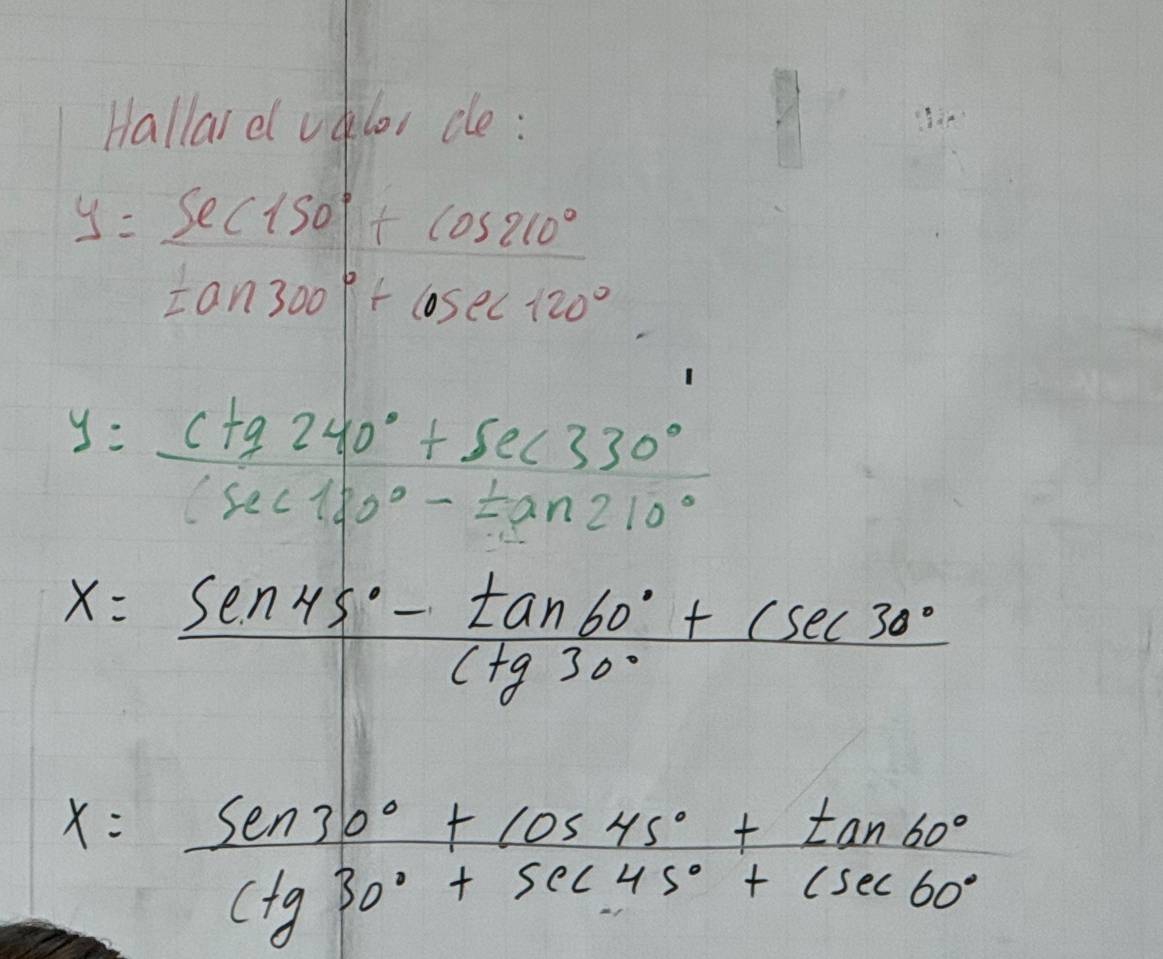 Hallar el valor de :
y = sec 150° + cos 210°
tan 300° + cosec 120°
y = Ctg 240° + sec 330°
Csec 120° - tan 210°
X = Sen 45° - tan 60° + Csec 30°
Ctg 30°
X = Sen 30° + cos 45° + tan 60°
Ctg 30° + sec 45° + Csec 60°